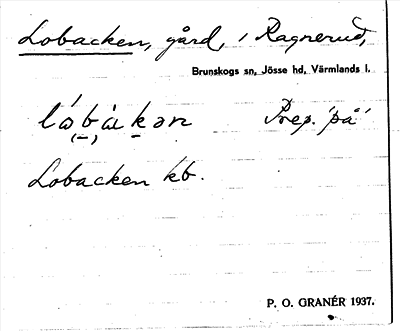 Lobacken, gård, i Ragnerud,
Brunskogs sn, Jösse hd, Värmlands l.
Prep. 'på'
Lobacken kb.
P. O. GRANÉR 1937.